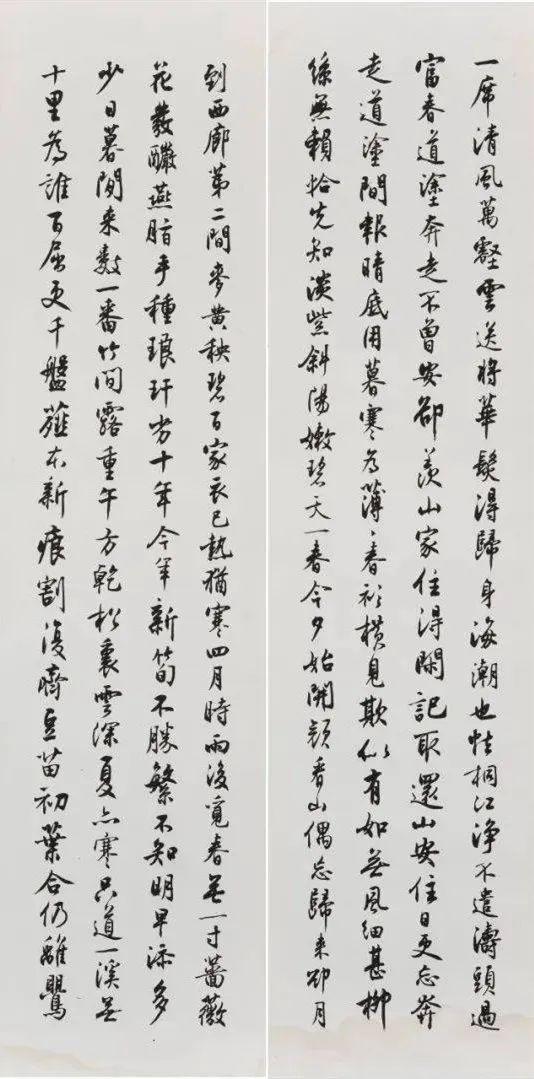 一席清風萬壑雲送將華髮得歸身海潮也怯桐江淨不遣濤頭過
富春道塗奔走不曾安卻羨山家住得閑記取還山安住日更忘奔
走道塗間報晴底用暮寒為薄、春衫橫見欺似有如無風細甚柳
絲無賴恰先知淡紫斜陽嫩碧天一春今夕始開顏看山偶忘歸來卻月
到西廊第二間麥黃秧碧百家衣已熱猶寒四月時雨後覓春無一寸薔薇
花發釅燕脂手種琅玕劣十年今年新筍不勝繁不知明早添多
少日暮閑来數一番竹間露重午方乾松裏雲深夏亦寒只道一溪無
十里為誰百屈更千盤薤本新痕割復齊豆苗初葉合仍離鸎